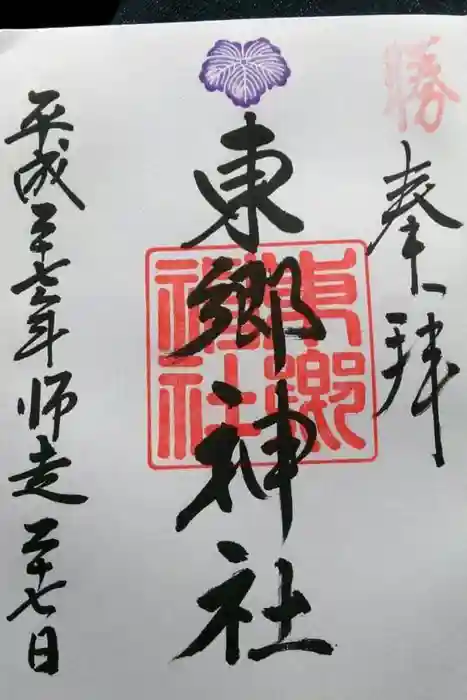 勝
奉拝
東郷神社
東郷神社
平成二十七年師走二十七日